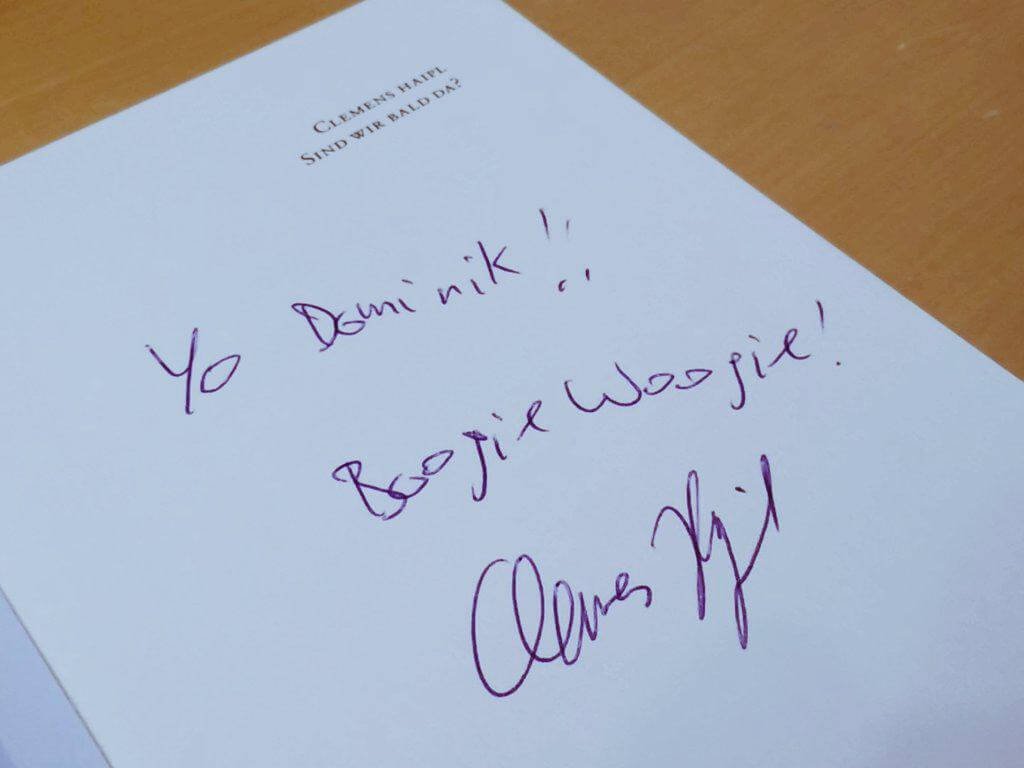 Clemens Haipl
Sind wir bald da?
Yo Dominik!!
Boogie Woogie!
Clemens Haipl